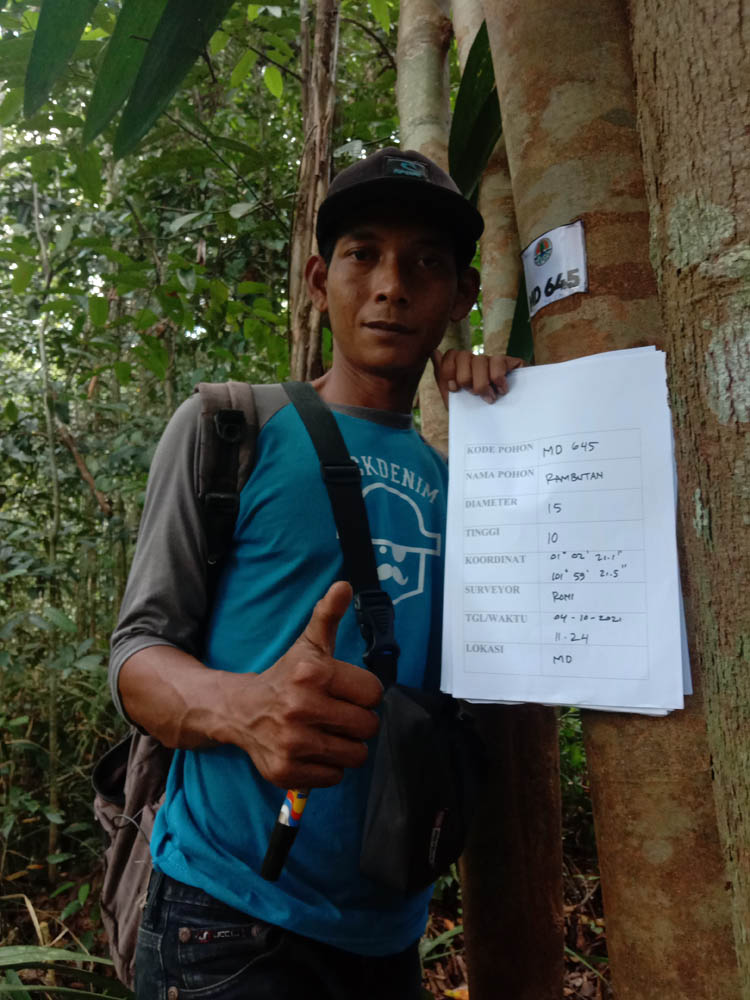 MD 645
CKDENIM
KODE POHON MD 645
NAMA POHON RAMBUTAN
DIAMETER 15
TINGGI 10
KOORDINAT 01° 02' 21.1"
101° 59' 21.5"
SURVEYOR ROMI
TGL/WAKTU 04-10-2021
11-24
LOKASI MD